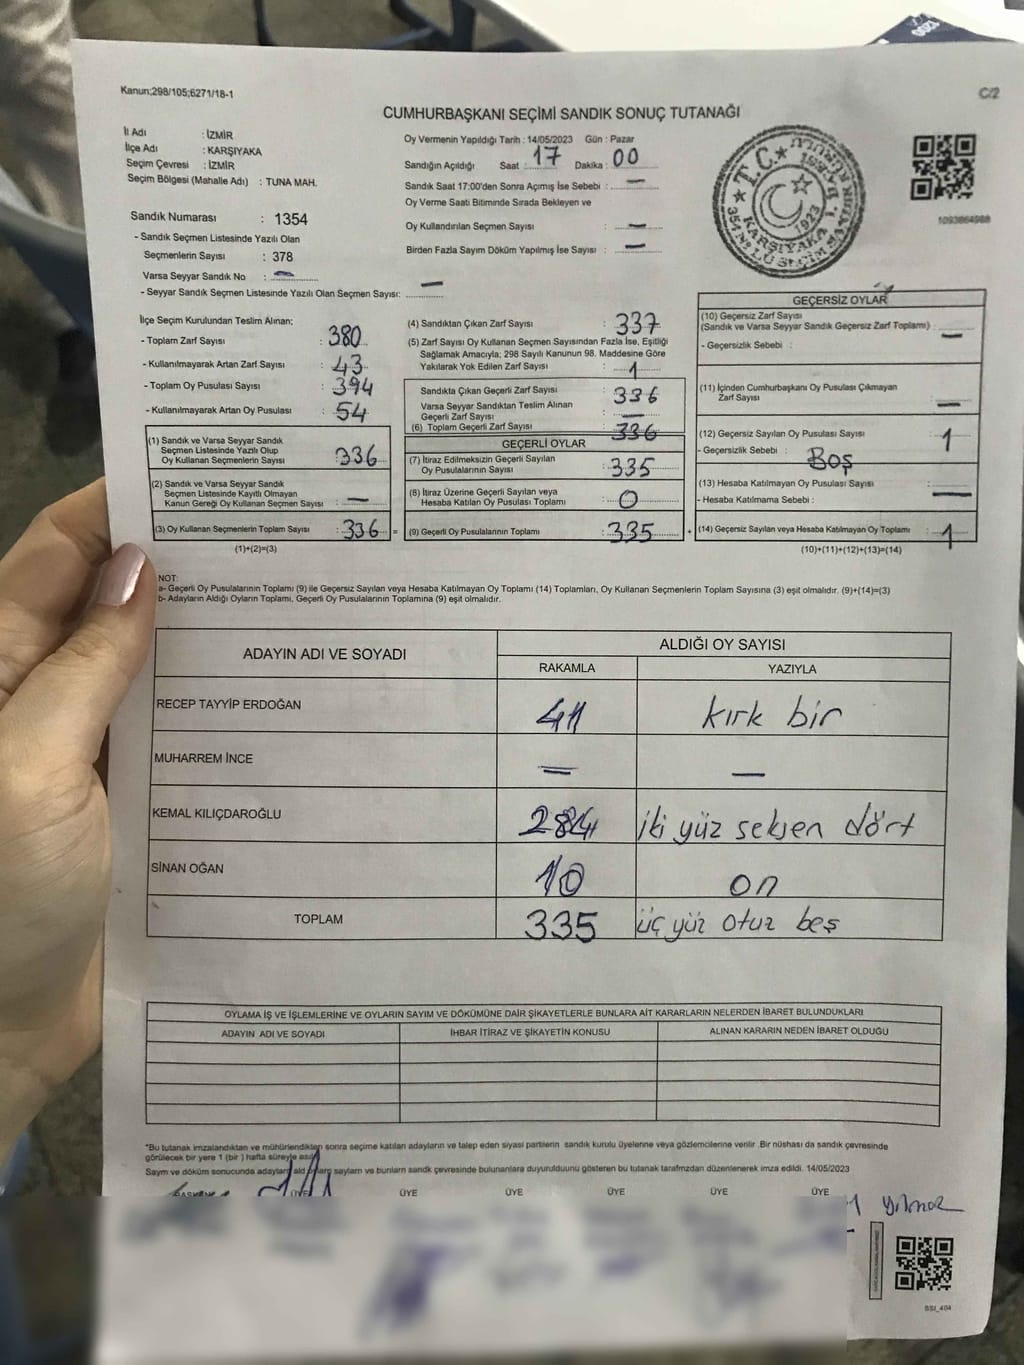 Kanun;298/105;6271/18-1
C/2
CUMHURBAŞKANI SEÇİMİ SANDIK SONUÇ TUTANAĞI
İl Adı : İZMİR
İlçe Adı : KARŞIYAKA
Seçim Çevresi : İZMİR
Seçim Bölgesi (Mahalle Adı) : TUNA MAH.
Sandık Numarası : 1354
- Sandık Seçmen Listesinde Yazılı Olan
Seçmenlerin Sayısı : 378
Varsa Seyyar Sandık No : —
- Seyyar Sandık Seçmen Listesinde Yazılı Olan Seçmen Sayısı: —
Oy Vermenin Yapıldığı Tarih : 14/05/2023 Gün : Pazar
Sandığın Açıldığı Saat : 17 Dakika : 00
Sandık Saat 17:00'den Sonra Açımış İse Sebebi : —
Oy Verme Saati Bitiminde Sırada Bekleyen ve
Oy Kullandırılan Seçmen Sayısı : —
Birden Fazla Sayım Döküm Yapılmış İse Sayısı : —
T.C.
KARŞIYAKA
1923
1093864988
İlçe Seçim Kurulundan Teslim Alınan;
- Toplam Zarf Sayısı : 380
- Kullanılmayarak Artan Zarf Sayısı : 43
- Toplam Oy Pusulası Sayısı : 394
- Kullanılmayarak Artan Oy Pusulası : 54
(1) Sandık ve Varsa Seyyar Sandık
Seçmen Listesinde Yazılı Olup
Oy Kullanan Seçmenlerin Sayısı : 336
(2) Sandık ve Varsa Seyyar Sandık
Seçmen Listesinde Kayıtlı Olmayan
Kanun Gereği Oy Kullanan Seçmen Sayısı : —
(3) Oy Kullanan Seçmenlerin Toplam Sayısı : 336 =
(1)+(2)=(3)
(4) Sandıktan Çıkan Zarf Sayısı : 337
(5) Zarf Sayısı Oy Kullanan Seçmen Sayısından Fazla İse, Eşitliği
Sağlamak Amacıyla; 298 Sayılı Kanunun 98. Maddesine Göre
Yakılarak Yok Edilen Zarf Sayısı : 1
Sandıkta Çıkan Geçerli Zarf Sayısı : 336
Varsa Seyyar Sandıktan Teslim Alınan
Geçerli Zarf Sayısı : —
(6) Toplam Geçerli Zarf Sayısı : 336
GEÇERLİ OYLAR
(7) İtiraz Edilmeksizin Geçerli Sayılan
Oy Pusulalarının Sayısı : 335
(8) İtiraz Üzerine Geçerli Sayılan veya
Hesaba Katılan Oy Pusulası Toplamı : 0
(9) Geçerli Oy Pusulalarının Toplamı : 335 +
GEÇERSİZ OYLAR
(10) Geçersiz Zarf Sayısı
(Sandık ve Varsa Seyyar Sandık Geçersiz Zarf Toplamı) : —
- Geçersizlik Sebebi :
(11) İçinden Cumhurbaşkanı Oy Pusulası Çıkmayan
Zarf Sayısı : —
(12) Geçersiz Sayılan Oy Pusulası Sayısı : 1
- Geçersizlik Sebebi : Boş
(13) Hesaba Katılmayan Oy Pusulası Sayısı : —
- Hesaba Katılmama Sebebi :
(14) Geçersiz Sayılan veya Hesaba Katılmayan Oy Toplamı : 1
(10)+(11)+(12)+(13)=(14)
NOT:
a- Geçerli Oy Pusulalarının Toplamı (9) ile Geçersiz Sayılan veya Hesaba Katılmayan Oy Toplamı (14) Toplamları, Oy Kullanan Seçmenlerin Toplam Sayısına (3) eşit olmalıdır. (9)+(14)=(3)
b- Adayların Aldığı Oyların Toplamı, Geçerli Oy Pusulalarının Toplamına (9) eşit olmalıdır.
ADAYIN ADI VE SOYADI
ALDIĞI OY SAYISI
RAKAMLA YAZIYLA
RECEP TAYYİP ERDOĞAN 41 kırk bir
MUHARREM İNCE — —
KEMAL KILIÇDAROĞLU 284 iki yüz seksen dört
SİNAN OĞAN 10 on
TOPLAM 335 üç yüz otuz beş
OYLAMA İŞ VE İŞLEMLERİNE VE OYLARIN SAYIM VE DÖKÜMÜNE DAİR ŞİKAYETLERLE BUNLARA AİT KARARLARIN NELERDEN İBARET BULUNDUKLARI
ADAYIN ADI VE SOYADI İHBAR İTİRAZ VE ŞİKAYETİN KONUSU ALINAN KARARIN NEDEN İBARET OLDUĞU
*Bu tutanak imzalandıktan ve mühürlendikten sonra seçime katılan adayların ve talep eden siyasi partilerin sandık kurulu üyelerine veya gözlemcilerine verilir .Bir nüshası da sandık çevresinde
görülecek bir yere 1 (bir ) hafta süreyle asılır.
Sayım ve döküm sonucunda adayların ald
14/05/2023
ÜYE ÜYE ÜYE ÜYE ÜYE ÜYE
Yılmaz
BSI_404